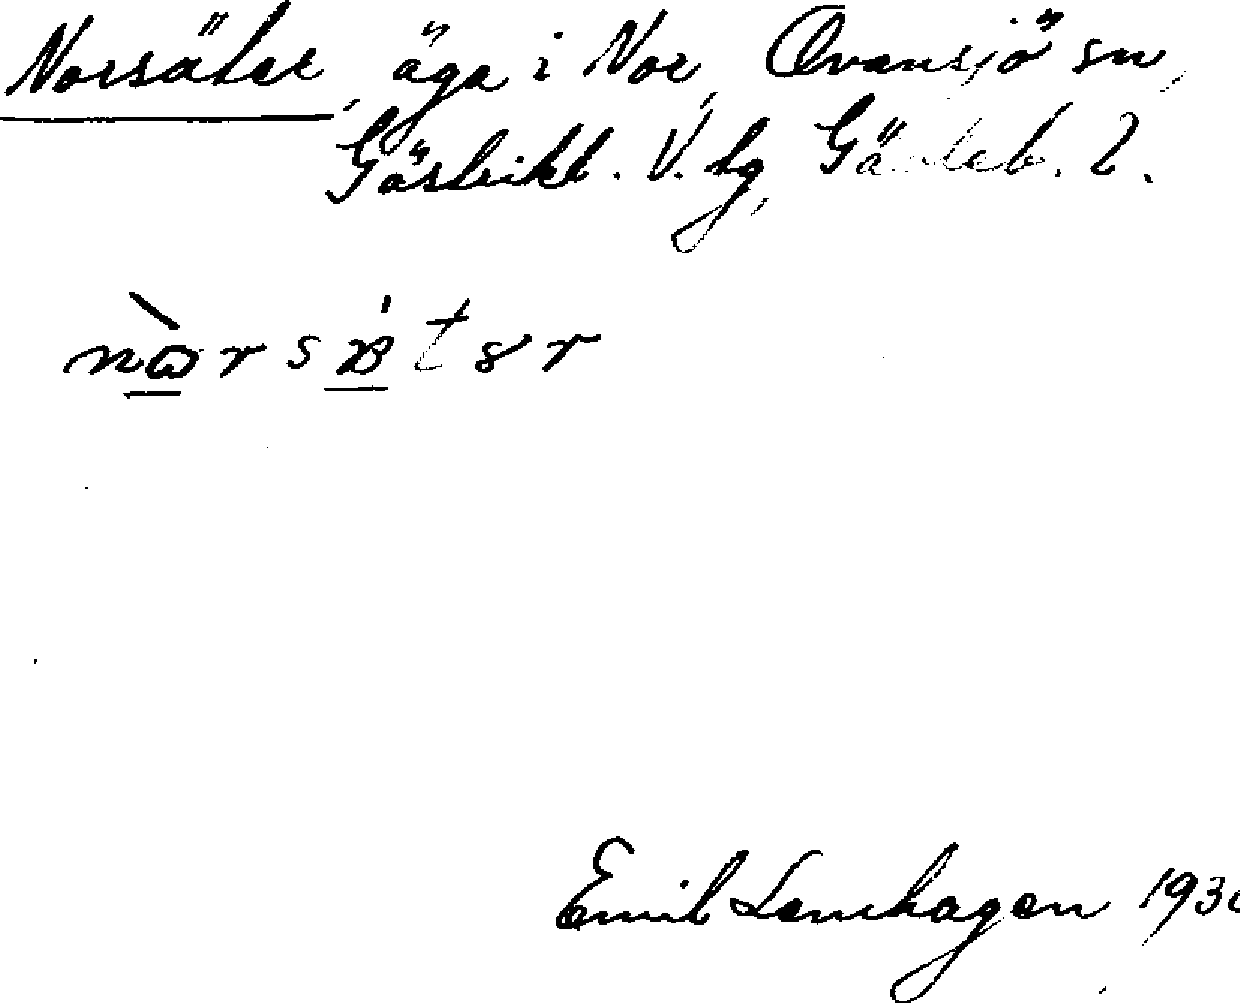 Norsäter, äga i Nor, Ovansjö sn,
Gästrikl. V. tg, Gävleb. l.
Emil Lenhagen